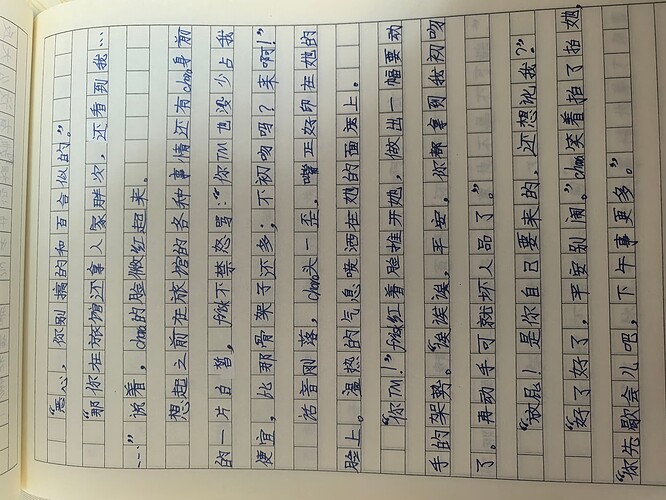 “恶心，你别搞的和百合似的。”
“那你在旅馆还拿人家胖次，还看到我…
…”说着，chro的脸微红起来。
想起之前在旅馆的各种事情还有chro身前
的一片白皙，frisk不禁怒骂：“你TM也没少占我
便宜，比那骨架子还多；不初吻吗？来啊！”
话音刚落，chro头一歪，嘴正好印在她的
脸上。温热的气息喷洒在她的面送上。
“你TM！”frisk红着脸推开她，做出一幅要动
手的架势。“诶诶诶，平安，你都拿到我初吻
了。再动手可就坏人品了。”
“放屁！是你自己要来的，还想讹我？”
“好了好了，平安别闹。”chro笑着拍了拍她，
“你先歇会儿吧，下午事更多。”